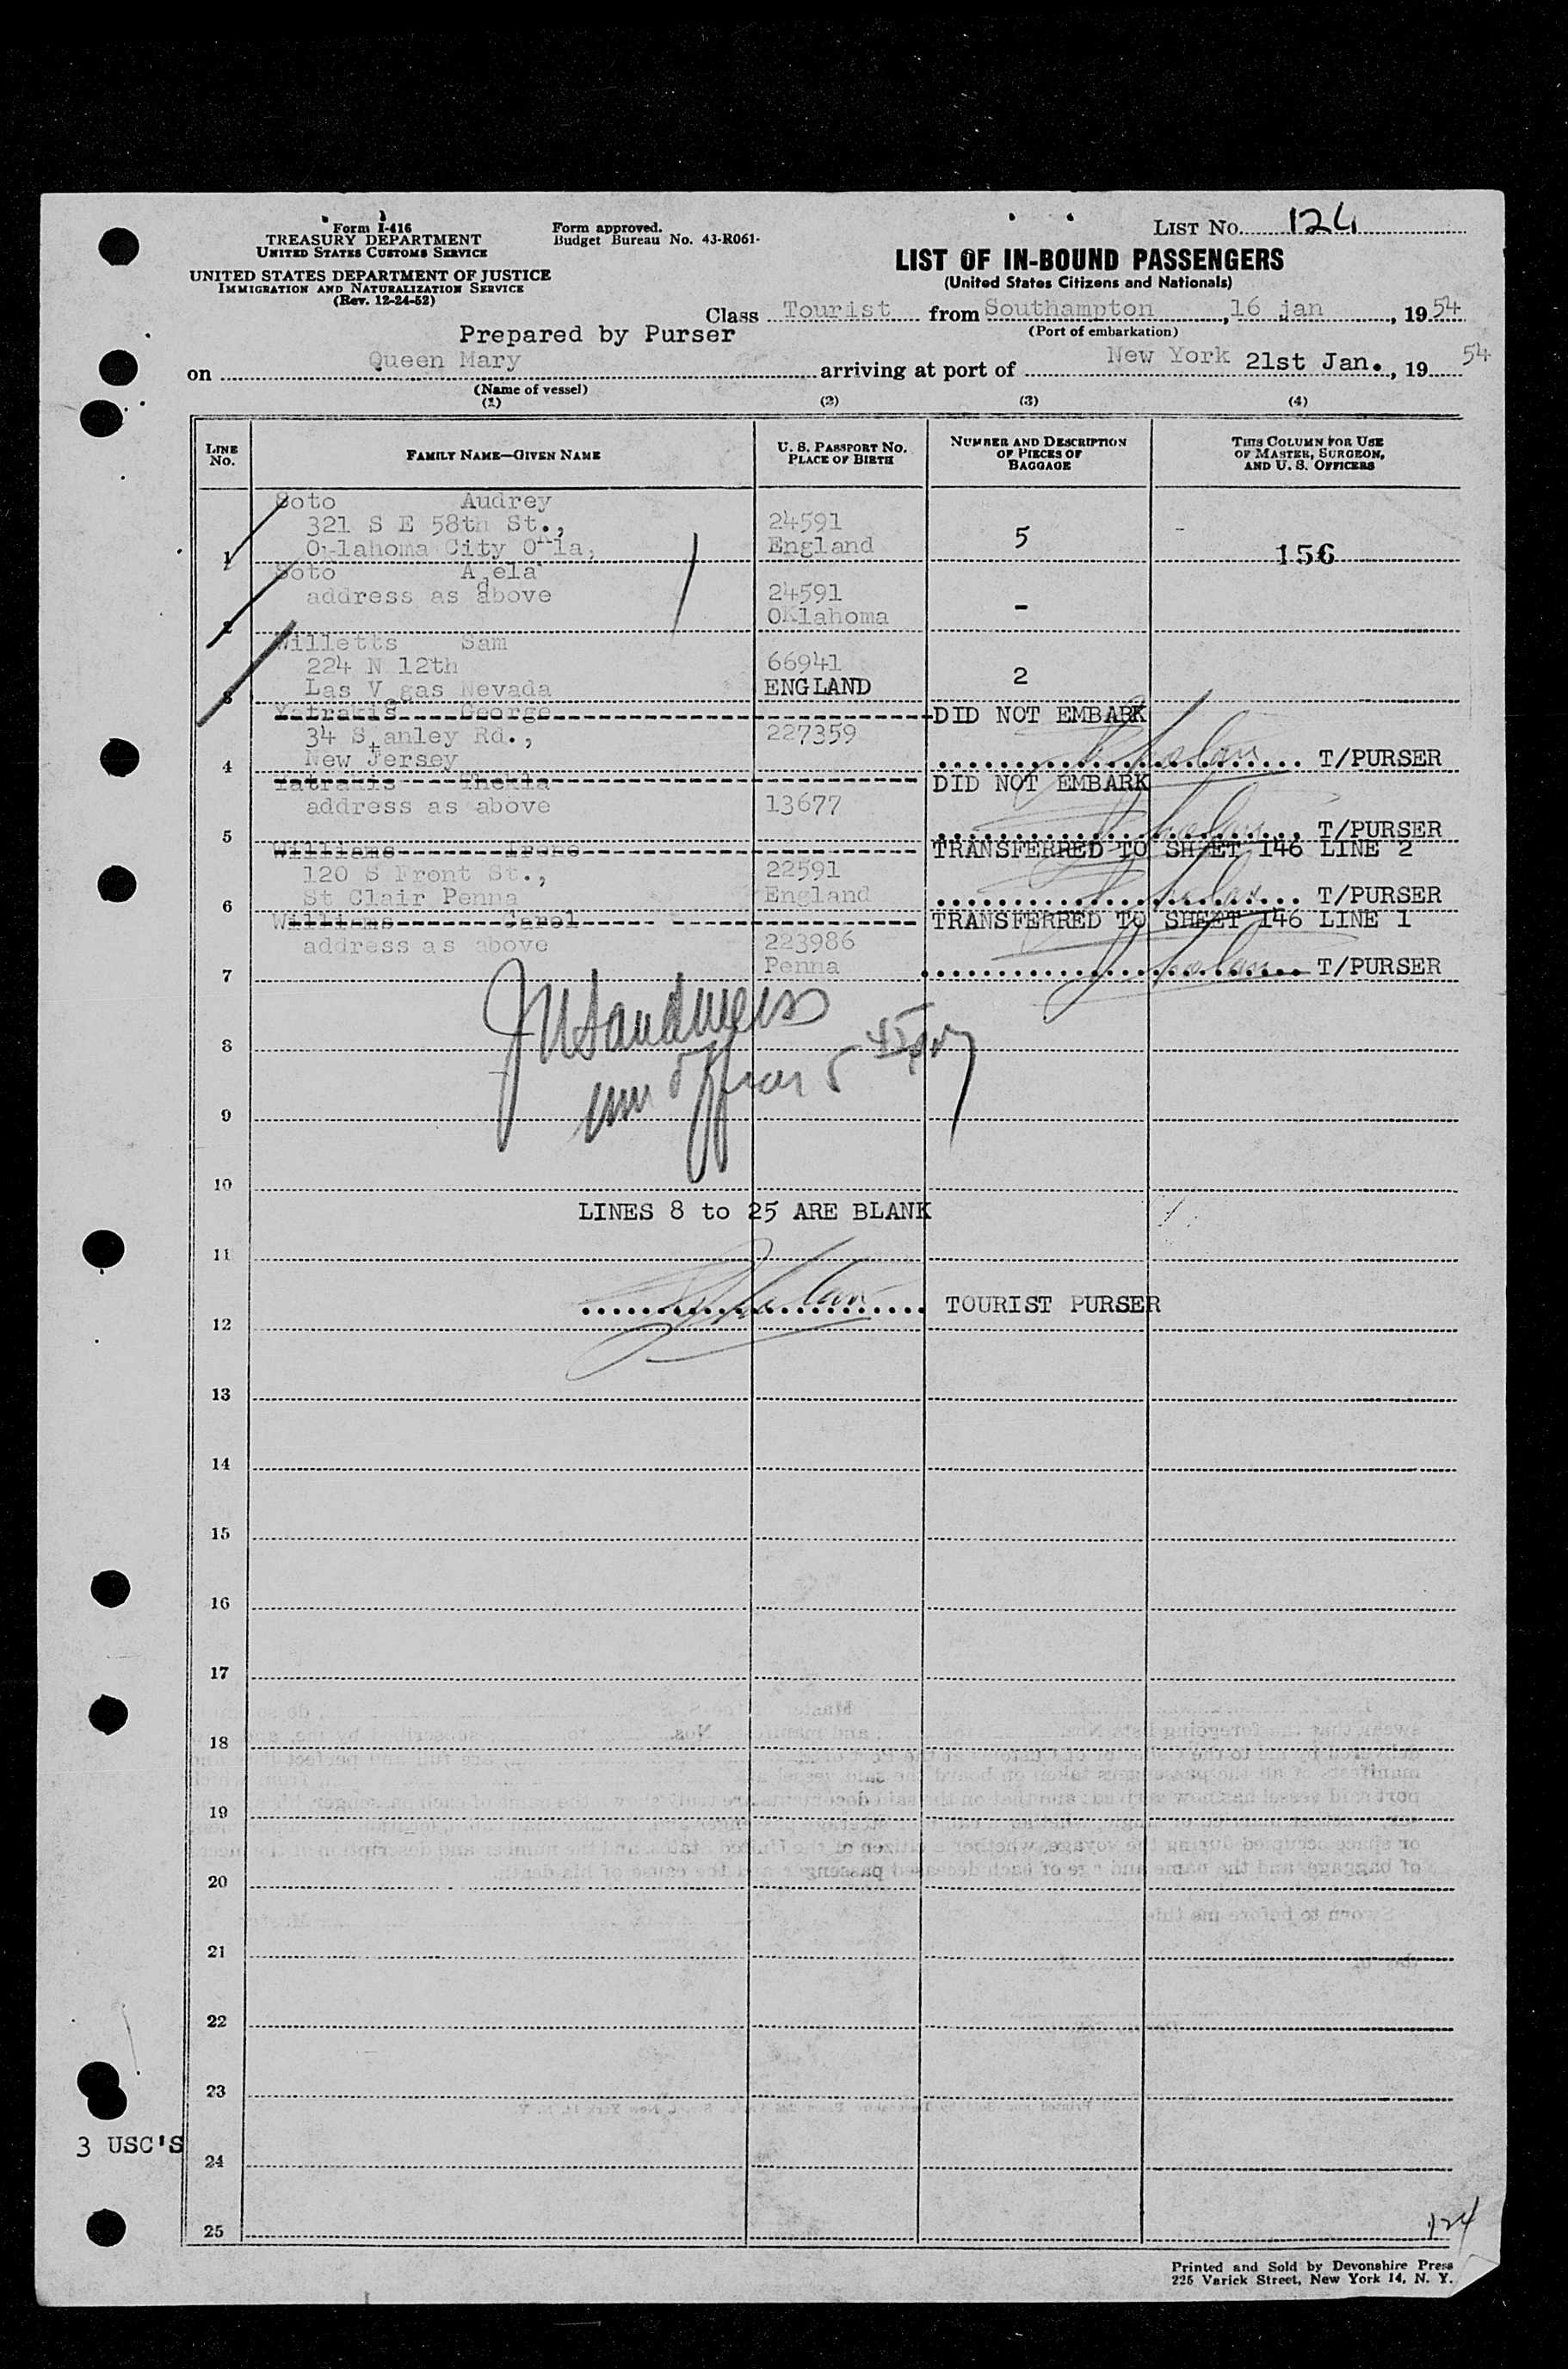 Form I-416
TREASURY DEPARTMENT
UNITED STATES CUSTOMS SERVICE
UNITED STATES DEPARTMENT OF JUSTICE
IMMIGRATION AND NATURALIZATION SERVICE
(Rev. 12-24-52)
Form approved.
Budget Bureau No. 43-R061-
LIST NO. 124
LIST OF IN-BOUND PASSENGERS
(United States Citizens and Nationals)
Class Tourist from Southampton, 16 jan, 1954
(Port of embarkation)
Prepared by Purser
on Queen Mary arriving at port of New York 21st Jan., 1954
(Name of vessel)
(1) (2) (3) (4)
LINE No.
FAMILY NAME—GIVEN NAME
U. S. PASSPORT NO.
PLACE OF BIRTH
NUMBER AND DESCRIPTION
OF PIECES OF
BAGGAGE
THIS COLUMN FOR USE
OF MASTER, SURGEON,
AND U. S. OFFICERS
Soto Audrey
321 S E 58th St., 24591
1 Oklahoma City Okla, England 5 156
Soto Adela
address as above 24591
2 Oklahoma -
Willetts Sam
224 N 12th 66941
3 Las V gas Nevada ENGLAND 2
Yatrakis George DID NOT EMBARK
34 Stanley Rd., 227359
4 New Jersey T/PURSER
Yatrakis Thekla DID NOT EMBARK
address as above 13677
5 T/PURSER
Williams Irene TRANSFERRED TO SHEET 146 LINE 2
120 S Front St., 22591
6 St Clair Penna England T/PURSER
Williams Carol TRANSFERRED TO SHEET 146 LINE 1
address as above 223986
7 Penna T/PURSER
8
9
10
LINES 8 to 25 ARE BLANK
11
TOURIST PURSER
12
13
14
15
16
17
18
19
20
21
22
23
3 USC'S
24
25
124
Printed and Sold by Devonshire Press
225 Varick Street, New York 14, N. Y.